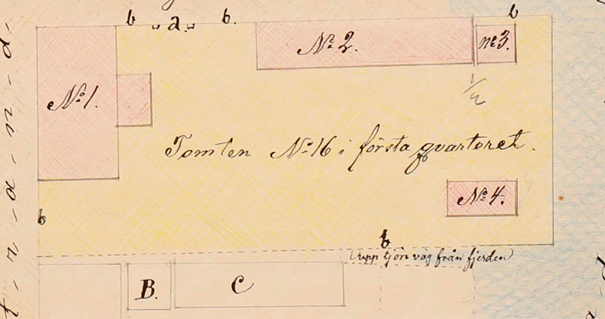 b a. b. b
No 2. No 3.
No 1.
1/2
Tomten No 16 i första qvarteret.
No 4.
b
b
(upp kjörs väg från fjerden)
B. C
t - r - a - n - d.